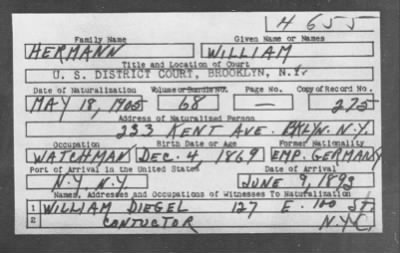 H 655
Family Name Given Name or Names
HERMANN WILLIAM
Title and Location of Court
U. S. DISTRICT COURT, BROOKLYN, N.Y.
Date of Naturalization Volume or Bundle No. Page No. Copy of Record No.
MAY 18, 1905 68 — 275
Address of Naturalized Person
233 KENT AVE. BKLYN. N.Y.
Occupation Birth Date or Age Former Nationality
WATCHMAN DEC. 4, 1869 EMP. GERMANY
Port of Arrival in the United States Date of Arrival
N.Y. N.Y JUNE 9, 1893
Names, Addresses and Occupations of Witnesses To Naturalization
1 WILLIAM DIEGEL 127 E. 100 ST.
2 CONTUCTOR N.Y.C.